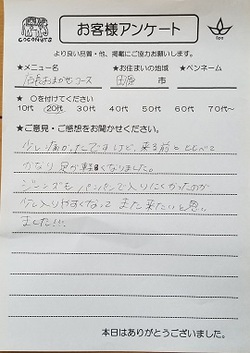 COCONUTS
お客様アンケート
より良い品質・他、掲載にご協力お願いします。
★メニュー名 ★お住まいの地域 ★ペンネーム
店長おまかせコース 田原 市
★ 〇を付けてください
10代 20代 30代 40代 50代 60代 70代~
★ご意見・ご感想をお聞かせください。
少し痛かったですけど、来る前と比べて
かなり足が軽くなりました。
ジーンズもパンパンで入りにくかったのが
少し入りやすくなって また来たいと思い
ました!!!
本日はありがとうございました。